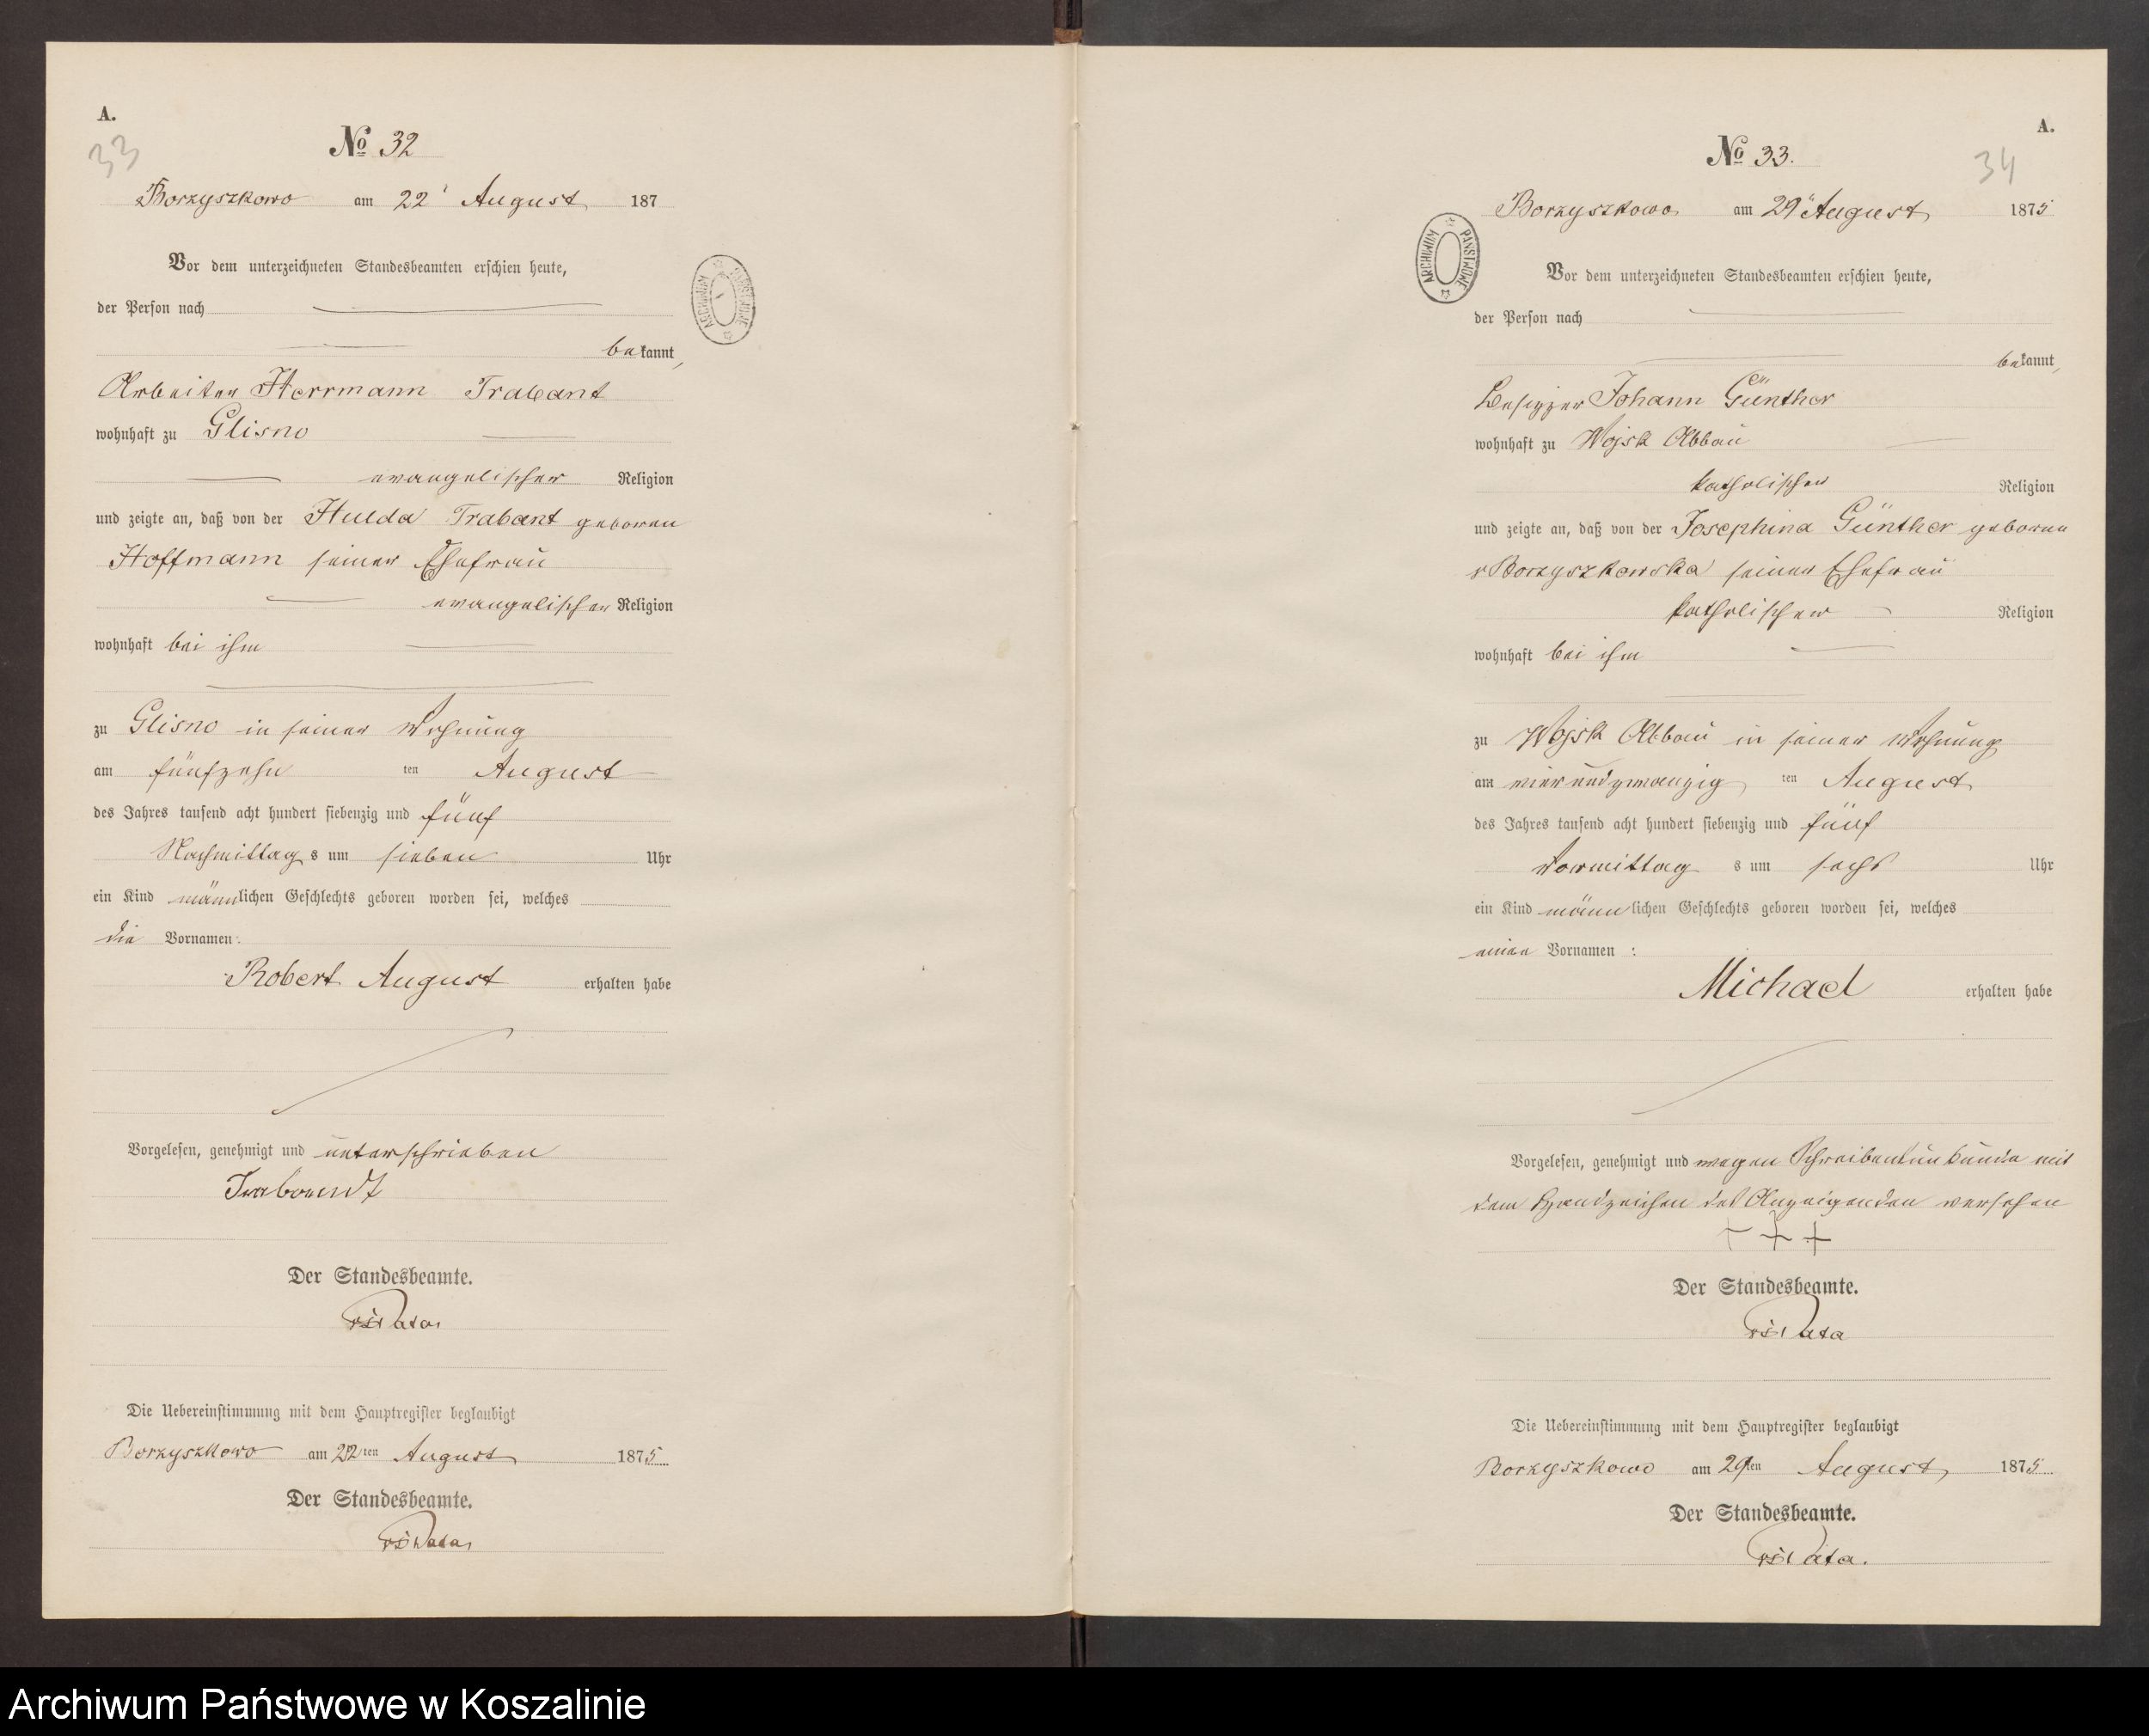 A.
33
No 32
Borzyszkowo am 22 August 187
Vor dem unterzeichneten Standesbeamten erschien heute,
der Person nach
bekannt,
Arbeiter Herrmann Trabant
wohnhaft zu Glisno
evangelischer Religion
und zeigte an, daß von der Hulda Trabant geboren
Hoffmann seiner Ehefrau
evangelischer Religion
wohnhaft bei ihm
zu Glisno in seiner Wohnung
am fünfzehn ten August
des Jahres tausend acht hundert siebenzig und fünf
Nachmittag s um sieben Uhr
ein Kind männlichen Geschlechts geboren worden sei, welches
die Vornamen:
Robert August erhalten habe
Vorgelesen, genehmigt und unterschrieben
Trabandt
Der Standesbeamte.
Die Uebereinstimmung mit dem Hauptregister beglaubigt
Borzyszkowo am 22ten August 1875
Der Standesbeamte.
ARCHIWUM PAŃSTWOWE
A.
34
No 33.
Borzyszkowo am 29 August 1875
Vor dem unterzeichneten Standesbeamten erschien heute,
der Person nach
bekannt,
Besitzer Johann Günther
wohnhaft zu Wojsk Abbau
katholischer Religion
und zeigte an, daß von der Josephina Günther geborene
v Borzyszkowska seiner Ehefrau
katholischer Religion
wohnhaft bei ihm
zu Wojsk Abbau in seiner Wohnung
am vierundzwanzig ten August
des Jahres tausend acht hundert siebenzig und fünf
Vormittag s um sechs Uhr
ein Kind männlichen Geschlechts geboren worden sei, welches
einen Vornamen :
Michael erhalten habe
Vorgelesen, genehmigt und wegen Schreibensunkunde mit
dem Handzeichen des Anzeigenden versehen
+++
Der Standesbeamte.
Die Uebereinstimmung mit dem Hauptregister beglaubigt
Borzyszkowo am 29ten August 1875
Der Standesbeamte.
ARCHIWUM PAŃSTWOWE
Archiwum Państwowe w Koszalinie